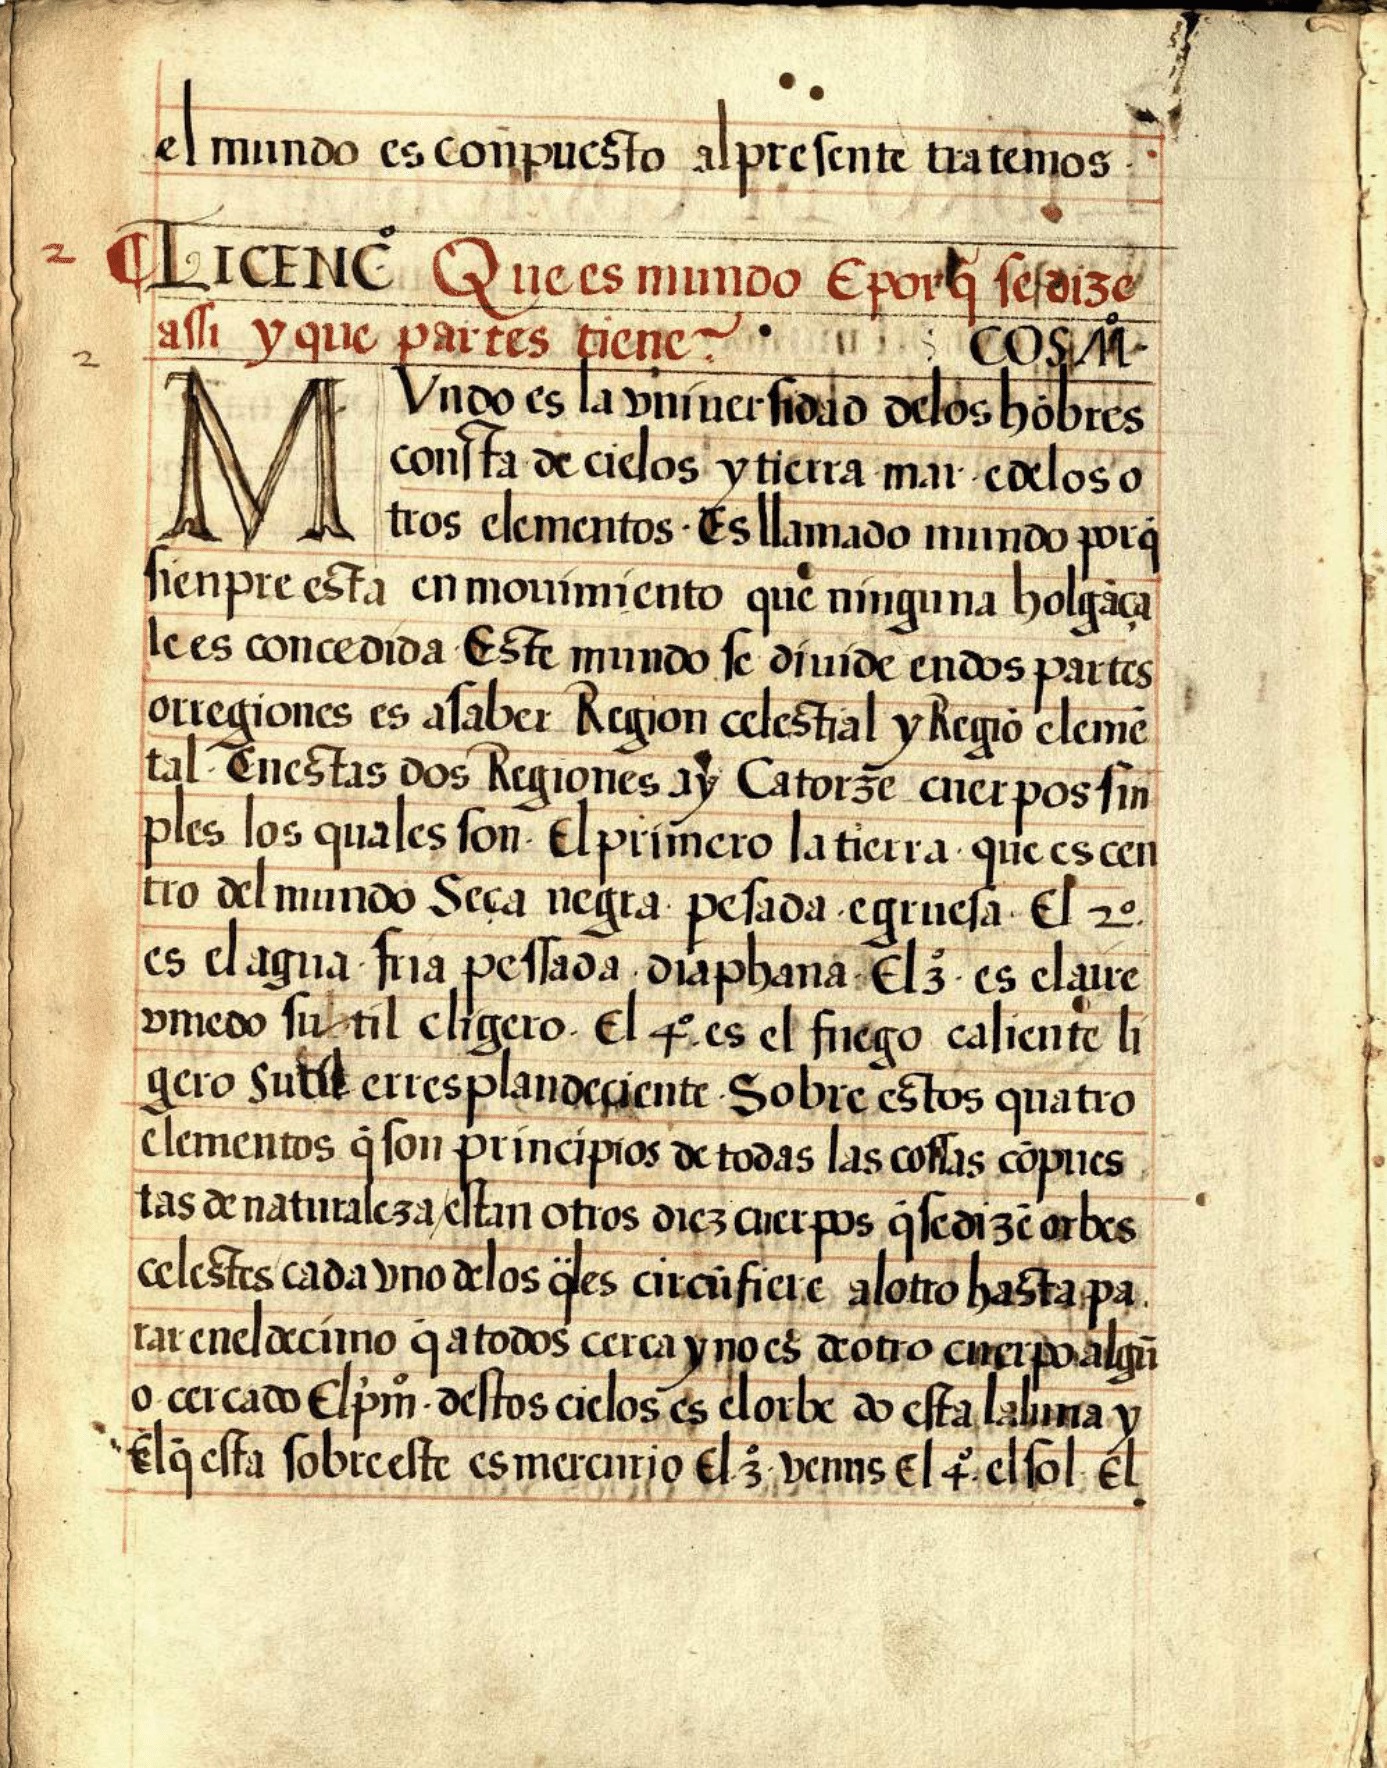 el mundo es conpuesto al presente tratemos.
2 ¶ LICENCº Que es mundo E porq̃ se dize
2 assi y que partes tiene? COSMº.
MVndo es la vniuersidad delos hõbres
consta de cielos y tierra mar e delos o
tros elementos. Es llamado mundo porq̃
sienpre esta en mouimiento que ninguna holgãça
le es concedida. Este mundo se diuide en dos partes
orregiones es asaber Region celestial y Regiõ elemẽ
tal. Enestas dos Regiones ay Catorze cuerpos sin
ples los quales son. El primero la tierra. que es cen
tro del mundo Seca negra. pesada. e gruesa. El 2º.
es el agua. fria pessada. diaphana. El 3º. es el aire
vmedo sutil e ligero. El 4º. es el fuego caliente li
gero sutil e rresplandeçiente. Sobre estos quatro
elementos q̃ son principios de todas las cossas cõpues
tas de naturaleza / estan otros diez cuerpos q̃ se dizẽ orbes
celestes / cada vno delos q̃les circũfiere al otro hasta pa
rar enel decimo q̃ a todos cerca y no es de otro cuerpo algũ
o cercado El pmº. destos cielos es el orbe do esta la luna y
El q̃ esta sobre este es mercurio El 3º. venus El 4º. el sol. El